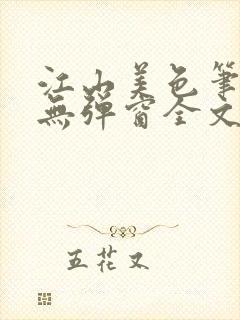 江山美色筆
無彈窗全文
五花又